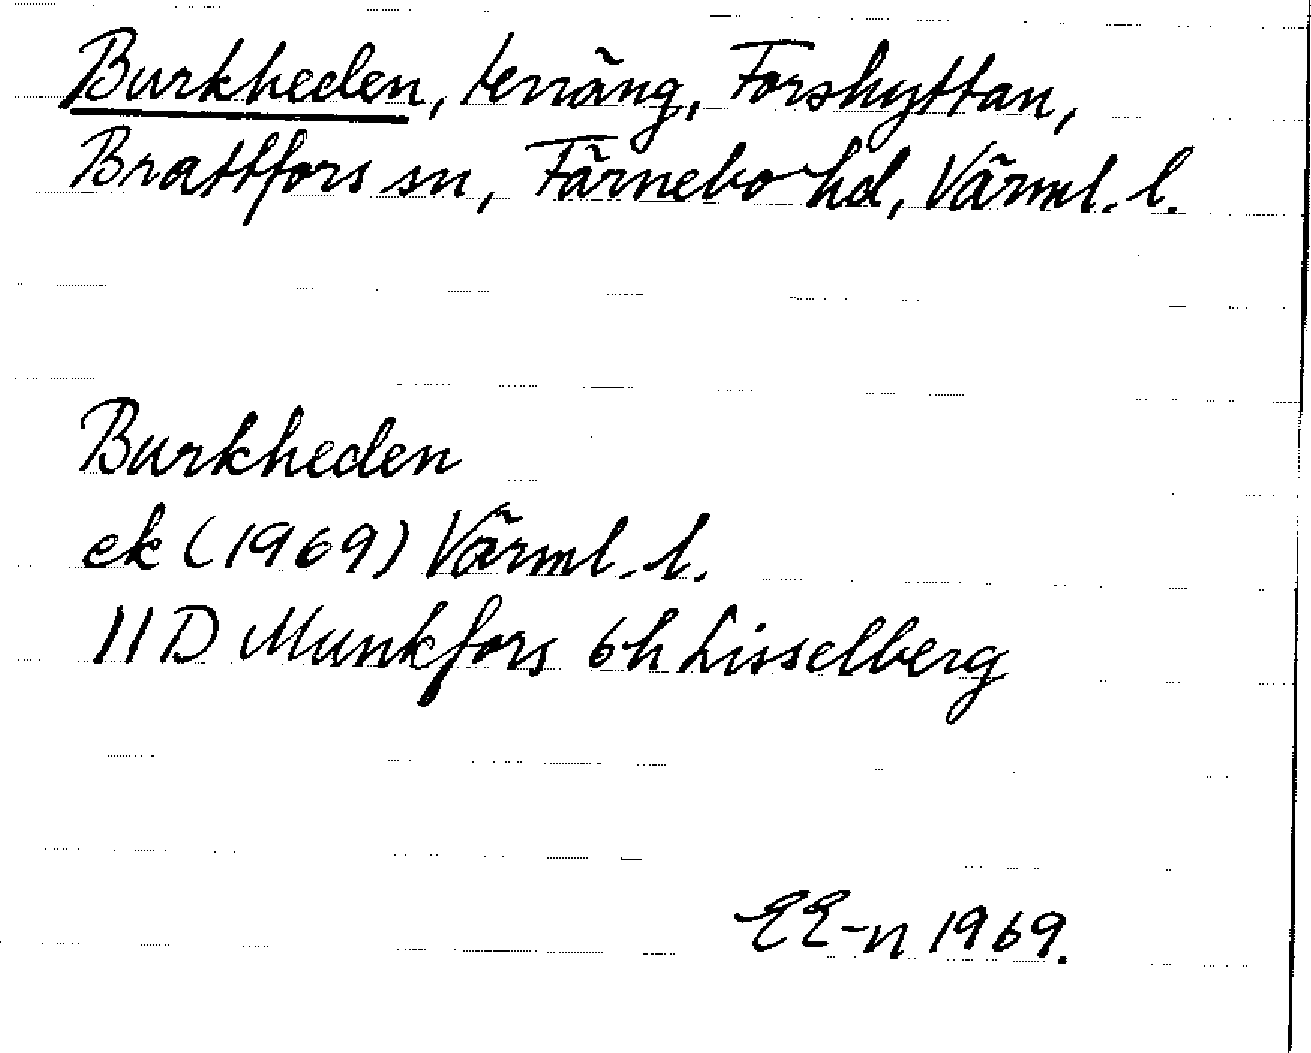 Burkheden, terräng, Forshyttan,
Brattfors sn, Färnebo hd, Värml. l.
Burkheden
ek (1969) Värml. l.
11D Munkfors 6h Lisselberg
EE-n 1969.